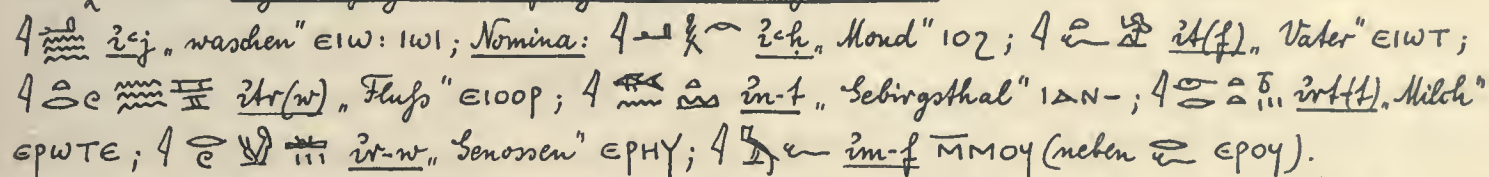 𓇋𓂝𓈗 i҆ꜥj „waschen" ⲉⲓⲱ: ⲓⲱⲓ; Nomina: 𓇋𓂝𓎛𓇹 i҆ꜥḥ „Mond" ⲓⲟϩ; 𓇋𓏏𓆑 i҆t(f) „Vater" ⲉⲓⲱⲧ;
i҆tr(w) „Fluſs" ⲉⲓⲟⲟⲣ; i҆n-t „Gebirgsthal" ⲓⲁⲛ-; i҆rt(t) „Milch"
ⲉⲣⲱⲧⲉ; i҆r-w „Genossen" ⲉⲣⲏⲩ; 𓇋𓅓𓆑 i҆m-f ⲙ̄ⲙⲟϥ (neben 𓂋𓆑 ⲉⲣⲟϥ).